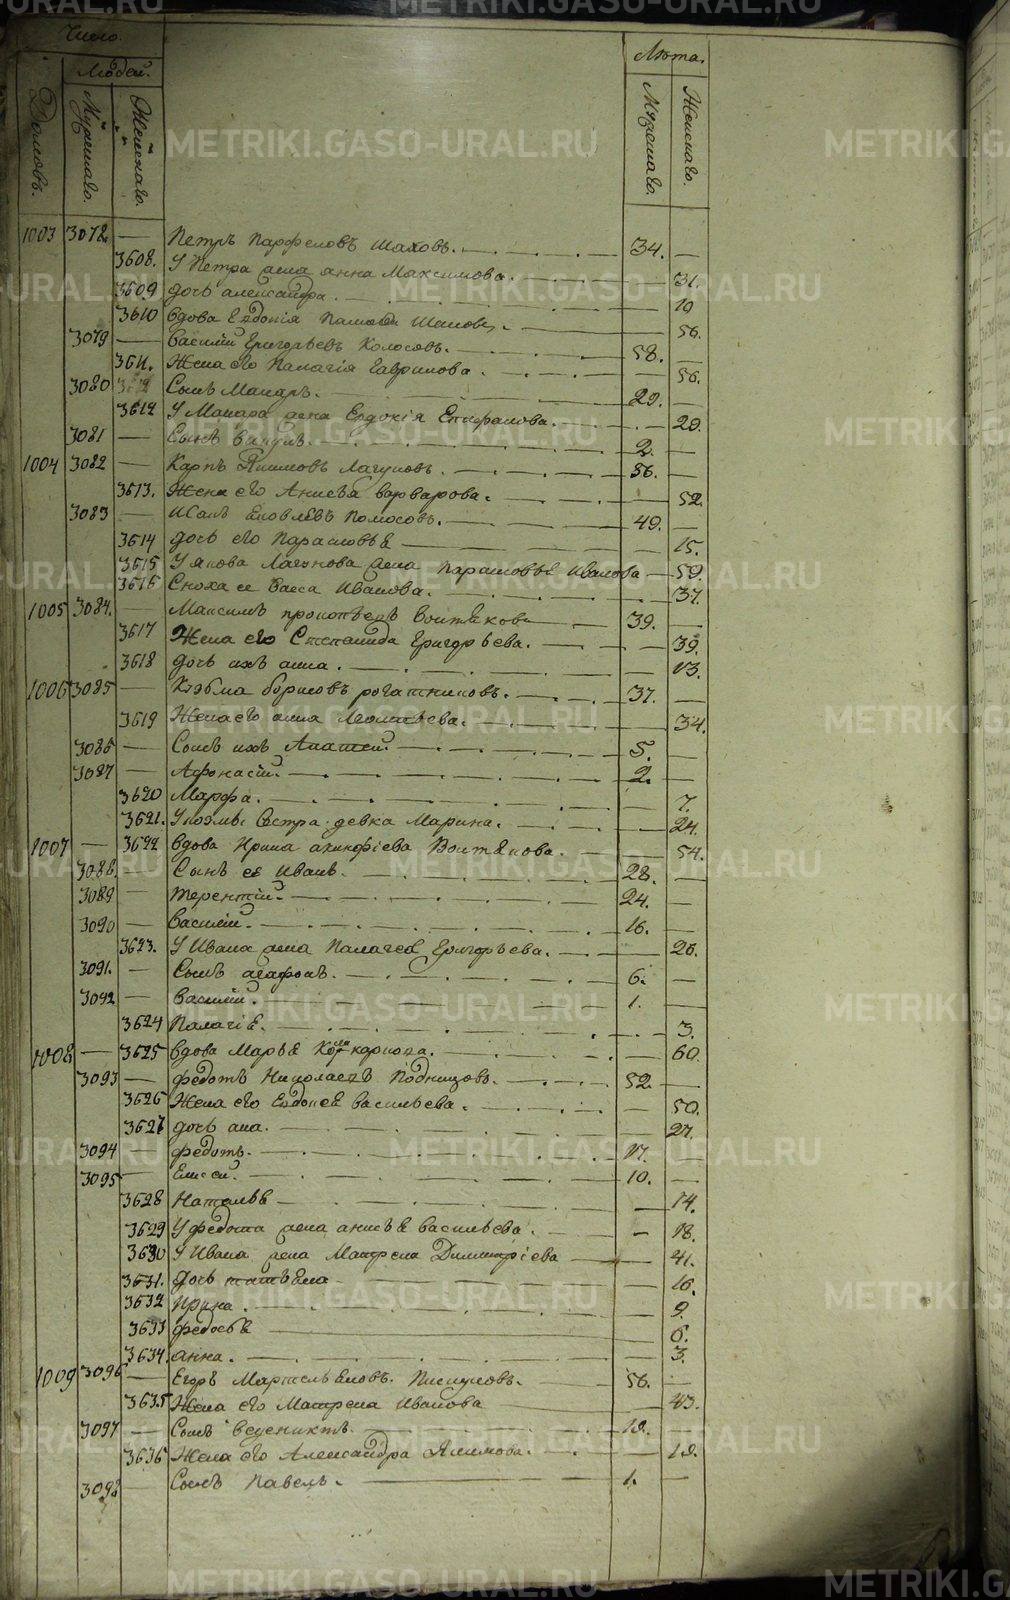 Число.
Людей.
Домовъ.
Мужескаго.
Женскаго.
Лѣта.
Мужескаго.
Женскаго.
1003 3078. — Петръ Парфеновъ Шаховъ. 34. —
3608. У Петра жена анна Максимова. — 31.
3609 дочь александра. — 10
3610 вдова Евдокія Шахова. — 56.
3079 — василий Григорьевъ Колосовъ. 58. —
3611. Жена его Палагія Гаврилова. — 56.
3080 Сынъ Макаръ. 29. —
3612 У Макара жена Евдокія Епифанова. — 29.
3081 — Сынъ викулъ. 2. —
1004 3082 — Карпъ Якимовъ Лагуновъ. 56. —
3613. Жена его Анисья варварова. — 52.
3083 — Исакъ Яковлевъ Колосовъ. 49. —
3614 дочь его Парасковья — 15.
3615 У якова Лагунова жена Парасковья Иванова — 59.
3616 Сноха ее Васса Иванова. — 37.
1005 3084. — Максимъ прокопьевъ Воитяковъ 39. —
3617 Жена его Степанида Григорьева. — 39.
3618 дочь ихъ анна. — 13.
1006 3085 — Козьма борисовъ рогатниковъ. 37. —
3619 Жена его анна Леонтьева. — 34.
3086 — Сынъ ихъ Ипатей. 5. —
3087 — Афонасій. 2. —
3620 Марфа. — 7.
3621. У козмы Сестра девка Марина. — 24.
1007 — 3622 вдова Ирина акинфіева Воитякова. — 54.
3088. — Сынъ ее Иванъ. 28. —
3089 — терентій. 24. —
3090 — василій. 16. —
3623. У Ивана жена Палагея Григорьева. — 26.
3091. — Сынъ агафонъ. 6. —
3092 — василій. 1. —
3624 Палагія. — 3.
1008 — 3625 вдова Марья — 60.
3093 — федотъ Николаевъ 52 —
3626 Жена его Евдокея васильева. — 50.
3627 дочь анна. — 27.
3094 — федотъ. 17. —
3095 — Елисей. 10. —
3628 Наталья — 14.
3629 У федота жена анисья васильева. — 18.
3630 У Ивана жена Матрена Димитріева — 41.
3631. дочь татьяна — 16.
3632 Ирина. — 9.
3633 федосья — 6.
3634. анна. — 3.
1009 3096 — Егоръ Мартемьяновъ Пискуновъ. 56. —
3635 Жена его Матрена Иванова — 43.
3097 — Сынъ веденихтъ. 19. —
3636 Жена его Александра Якимова. — 19.
3098 — Сынъ Павелъ. 1. —
METRIKI.GASO-URAL.RU